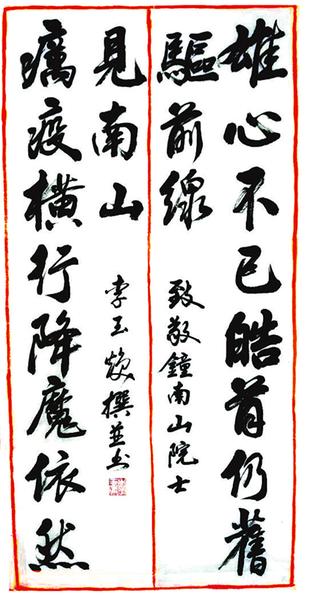 雄心不已皓首仍舊
驅前線
致敬鐘南山院士
癘疫橫行降魔依然
見南山
李玉煥撰並书